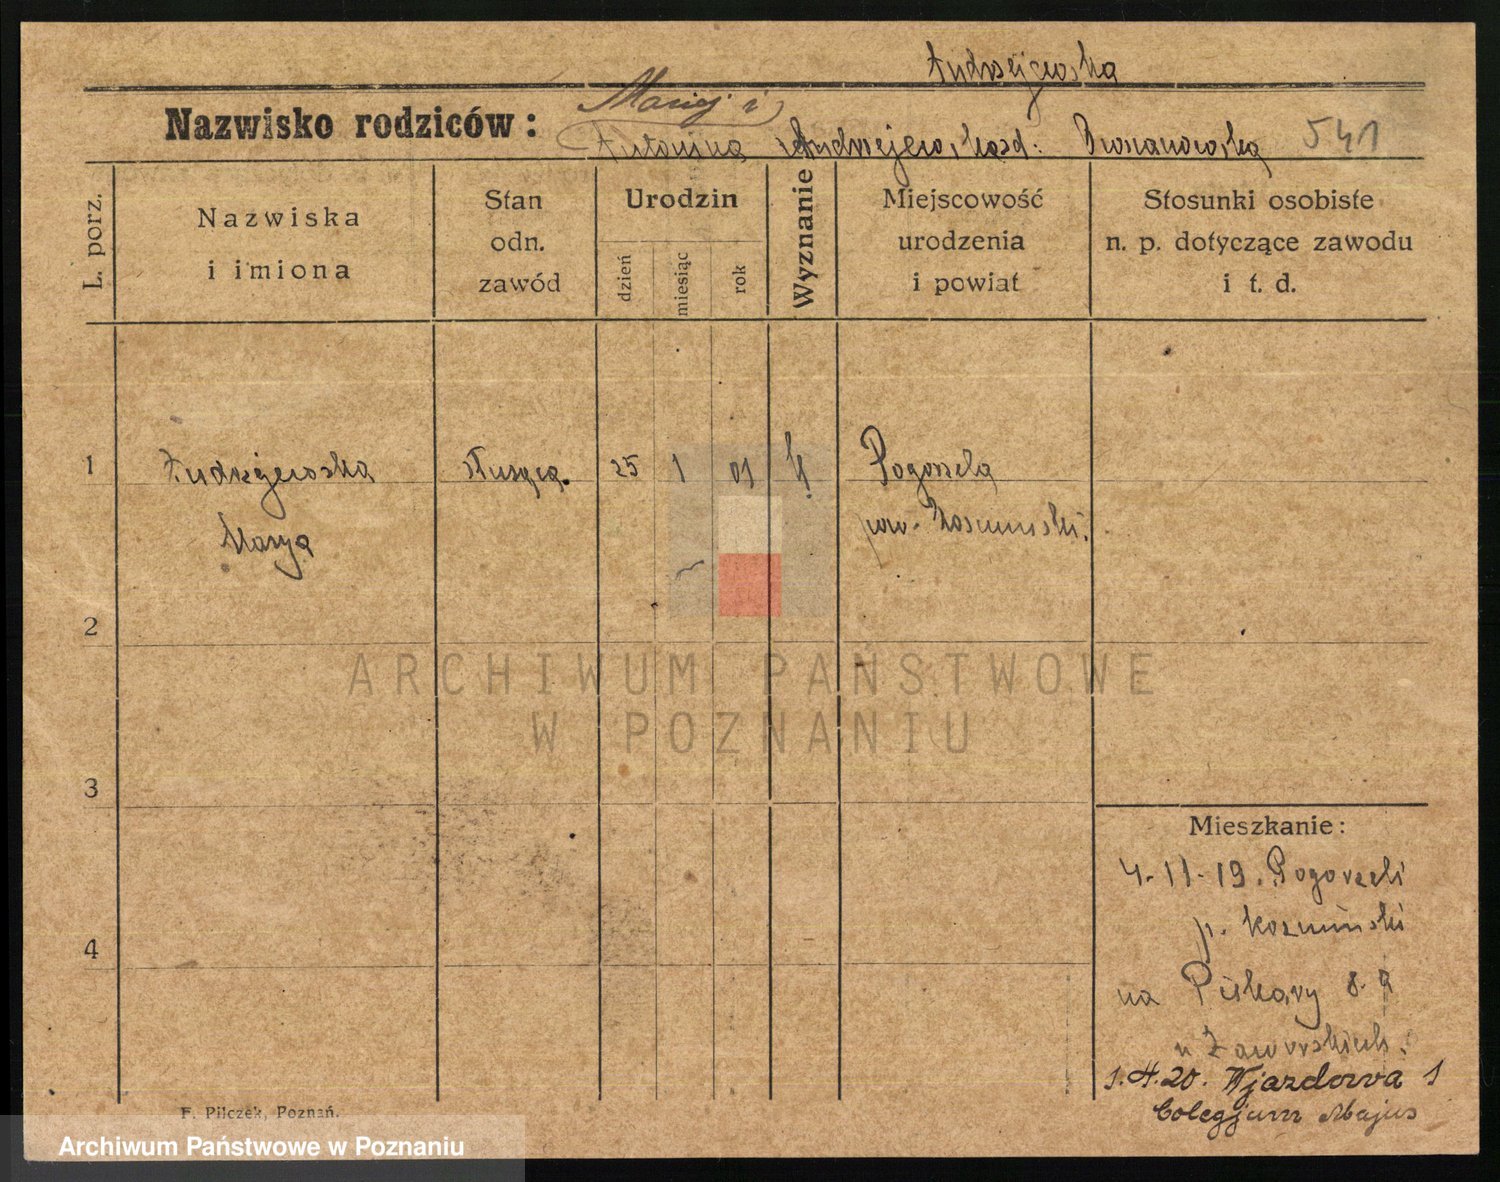 Andrzejewska
Nazwisko rodziców: Maciej i
Antonina Andrzejewska zd. 541
L. porz.
Nazwiska
i imiona
Stan
odn.
zawód
Urodzin
dzień
miesiąc
rok
Wyznanie
Miejscowość
urodzenia
i powiat
Stosunki osobiste
n. p. dotyczące zawodu
i t. d.
1 Andrzejewska służąca. 25 1 01 Pogorzela
Marya pow. Kozmiński.
2
3
4
ARCHIWUM PAŃSTWOWE
W POZNANIU
Mieszkanie:
4-11-19. Pogorzeli
p. Kozmiński
na Piekary 8.
u Zaworskich.
1.4.20. Wjazdowa 1
Colegjum Majus
F. Pilczek, Poznań.
Archiwum Państwowe w Poznaniu